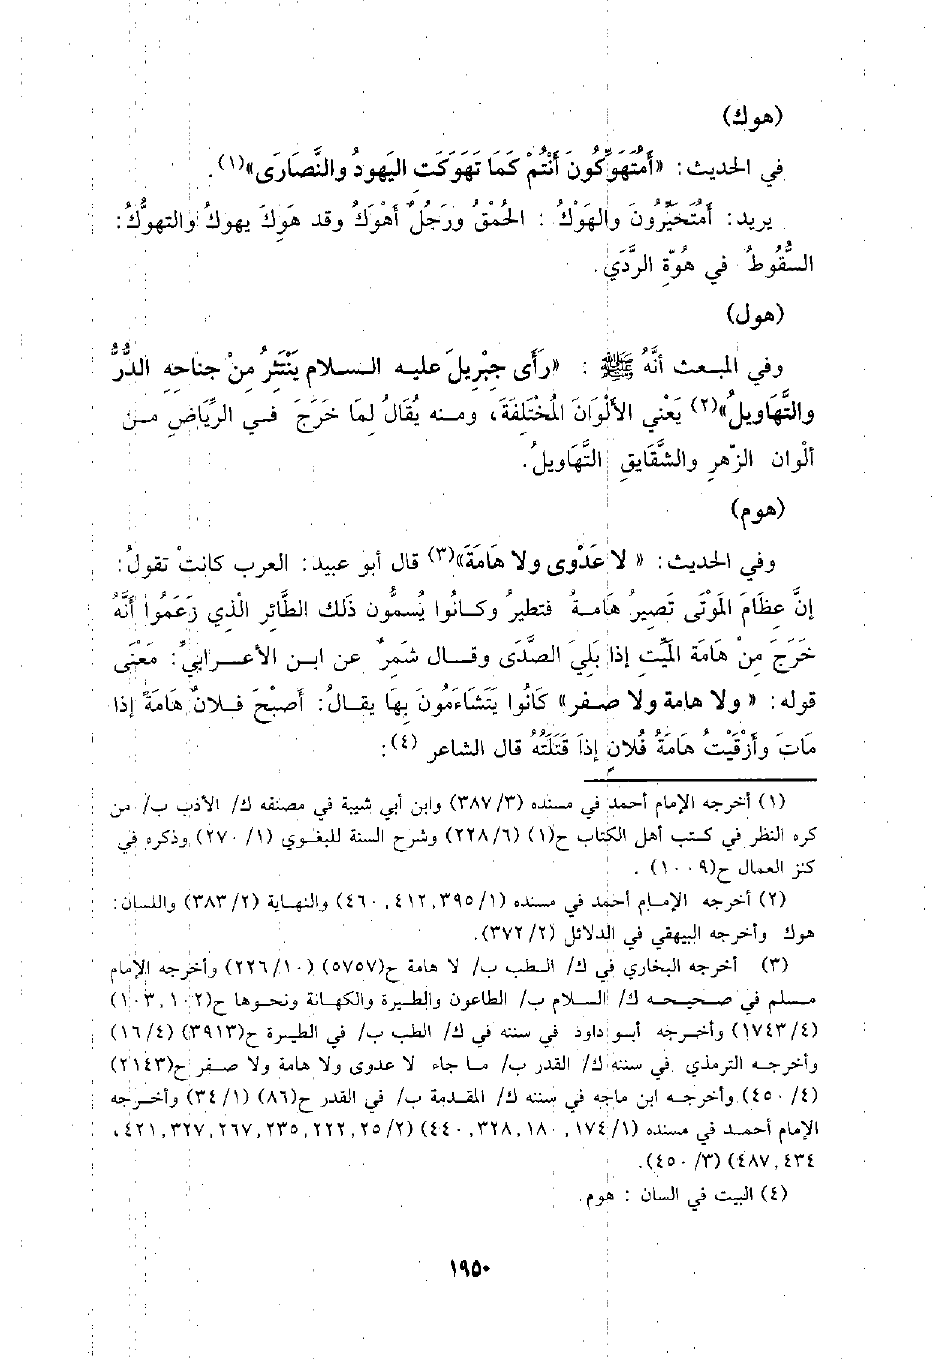 (هوك)
في الحديث: «أَمُتَهَوِّكُونَ أَنْتُمْ كَمَا تَهَوَكَت اليَهودُ والنَّصارَى»(١).
يريد: أَمُتَحَيِّرُونَ والهَوْكُ : الحُمْقُ ورَجُلٌ أَهْوَكُ وقد هَوِكَ يهوكُ والتهوُّكُ:
السُّقُوطُ في هُوّةِ الرَّدَي.
(هول)
وفي المبعث أنَّهُ ﷺ : «رَأَى جِبْرِيلَ عليه السلام يَنْتَثِرُ مِنْ جناحِهِ الدُّرُّ
والتَّهَاوِيلُ»(٢) يَعْنِي الأَلْوَانَ المُخْتَلفَةَ، ومنه يُقَالُ لمَا خَرَجَ في الرِّيَاضِ مِن
ألْوان الزّهرِ والشَّقايقِ التَّهَاويلُ.
(هوم)
وفي الحديث: « لا عَدْوَى ولا هَامَةَ»(٣) قال أبو عبيد: العرب كانتْ تقولُ:
إنَّ عِظَامَ المَوْتَى تَصِيرُ هَامةُ فتطيرُ وكانُوا يُسمُّون ذَلك الطَّائر الّذي زَعَمُوا أَنَّهُ
خَرَجَ مِنْ هَامَة المَيِّت إذا بَلِيَ الصَّدَى وقال شمرٌ عن ابن الأعرابيِّ: مَعْنَى
قوله: « ولا هامة ولا صفر» كَانُوا يَتَشَاءَمُونَ بِهَا يقالُ: أصْبْحَ فلانٌ هَامَةً إذا
مَاتَ وأَزْقَيْتُ هَامَةُ فُلانٍ إذاَ قَتَلَتُهُ قال الشاعر (٤):
(١) أخرجه الإمام أحمد في مسنده (٣٨٧/٣) وابن أبي شيبة في مصنفه ك/ الأدب ب/ من
كره النظر في كتب أهل الكتاب ح(١) (٢٢٨/٦) وشرح السنة للبغوي (٢٧٠/١) وذكره في
كنز العمال ح(١٠٠٩) .
(٢) أخرجه الإمام أحمد في مسنده (٤٦٠,٤١٢,٣٩٥/١) والنهاية (٣٨٣/٢) واللسان:
هوك وأخرجه البيهقي في الدلائل (٣٧٢/٢).
(٣) أخرجه البخاري في ك/ الطب ب/ لا هامة ح(٥٧٥٧) (٢٢٦/١٠) وأخرجه الإمام
مسلم في صحيحه ك/ السلام ب/ الطاعون والطيرة والكهانة ونحوها ح(١٠٣,١٠٢)
(١٧٤٣/٤) وأخرجه أبو داود في سننه في ك/ الطب ب/ في الطيرة ح(٣٩١٣) (١٦/٤)
وأخرجه الترمذي في سننه ك/ القدر ب/ ما جاء لا عدوى ولا هامة ولا صفر ح(٢١٤٣)
(٤٥٠/٤) وأخرجه ابن ماجه في سننه ك/ المقدمة ب/ في القدر ح(٨٦) (٣٤/١) وأخرجه
الإمام أحمد في مسنده (٤٤٠,٣٢٨,١٨٠,١٧٤/١) (٤٢١,٣٢٧,٢٦٧,٢٣٥,٢٢٢,٢٥/٢،
٤٨٧,٤٣٤) (٤٥٠/٣).
(٤) البيت في السان : هوم.
١٩٥٠